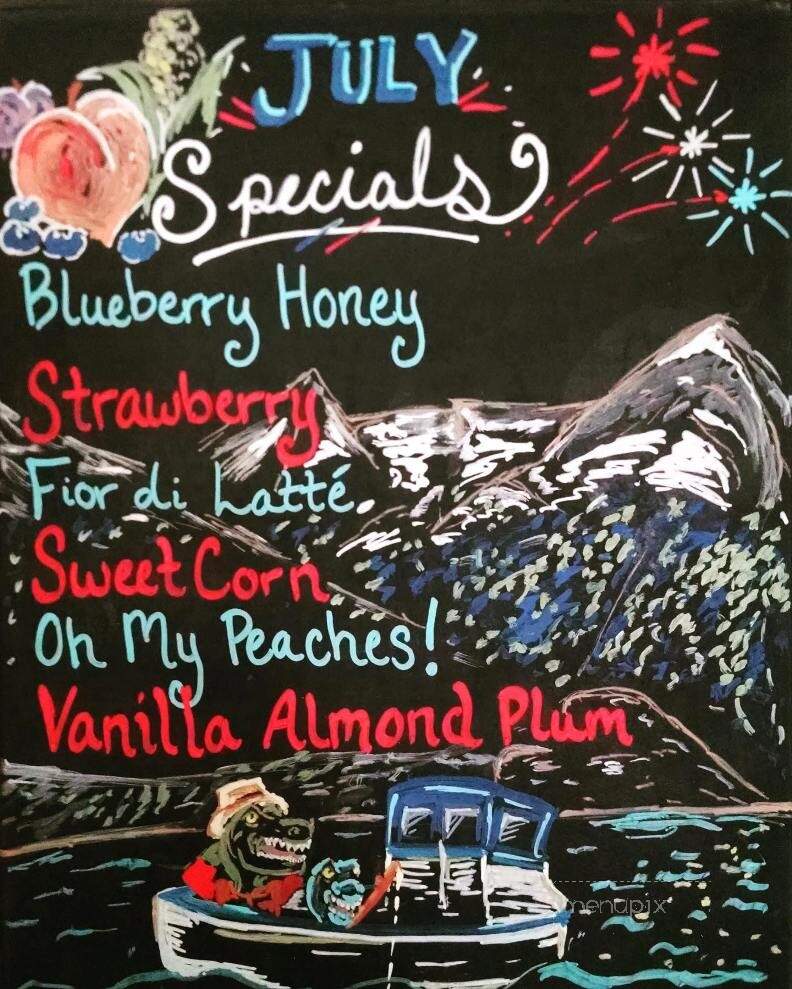 JULY
Specials
Blueberry Honey
Strawberry
Fior di Latté
Sweet Corn
Oh My Peaches!
Vanilla Almond Plum
menupix